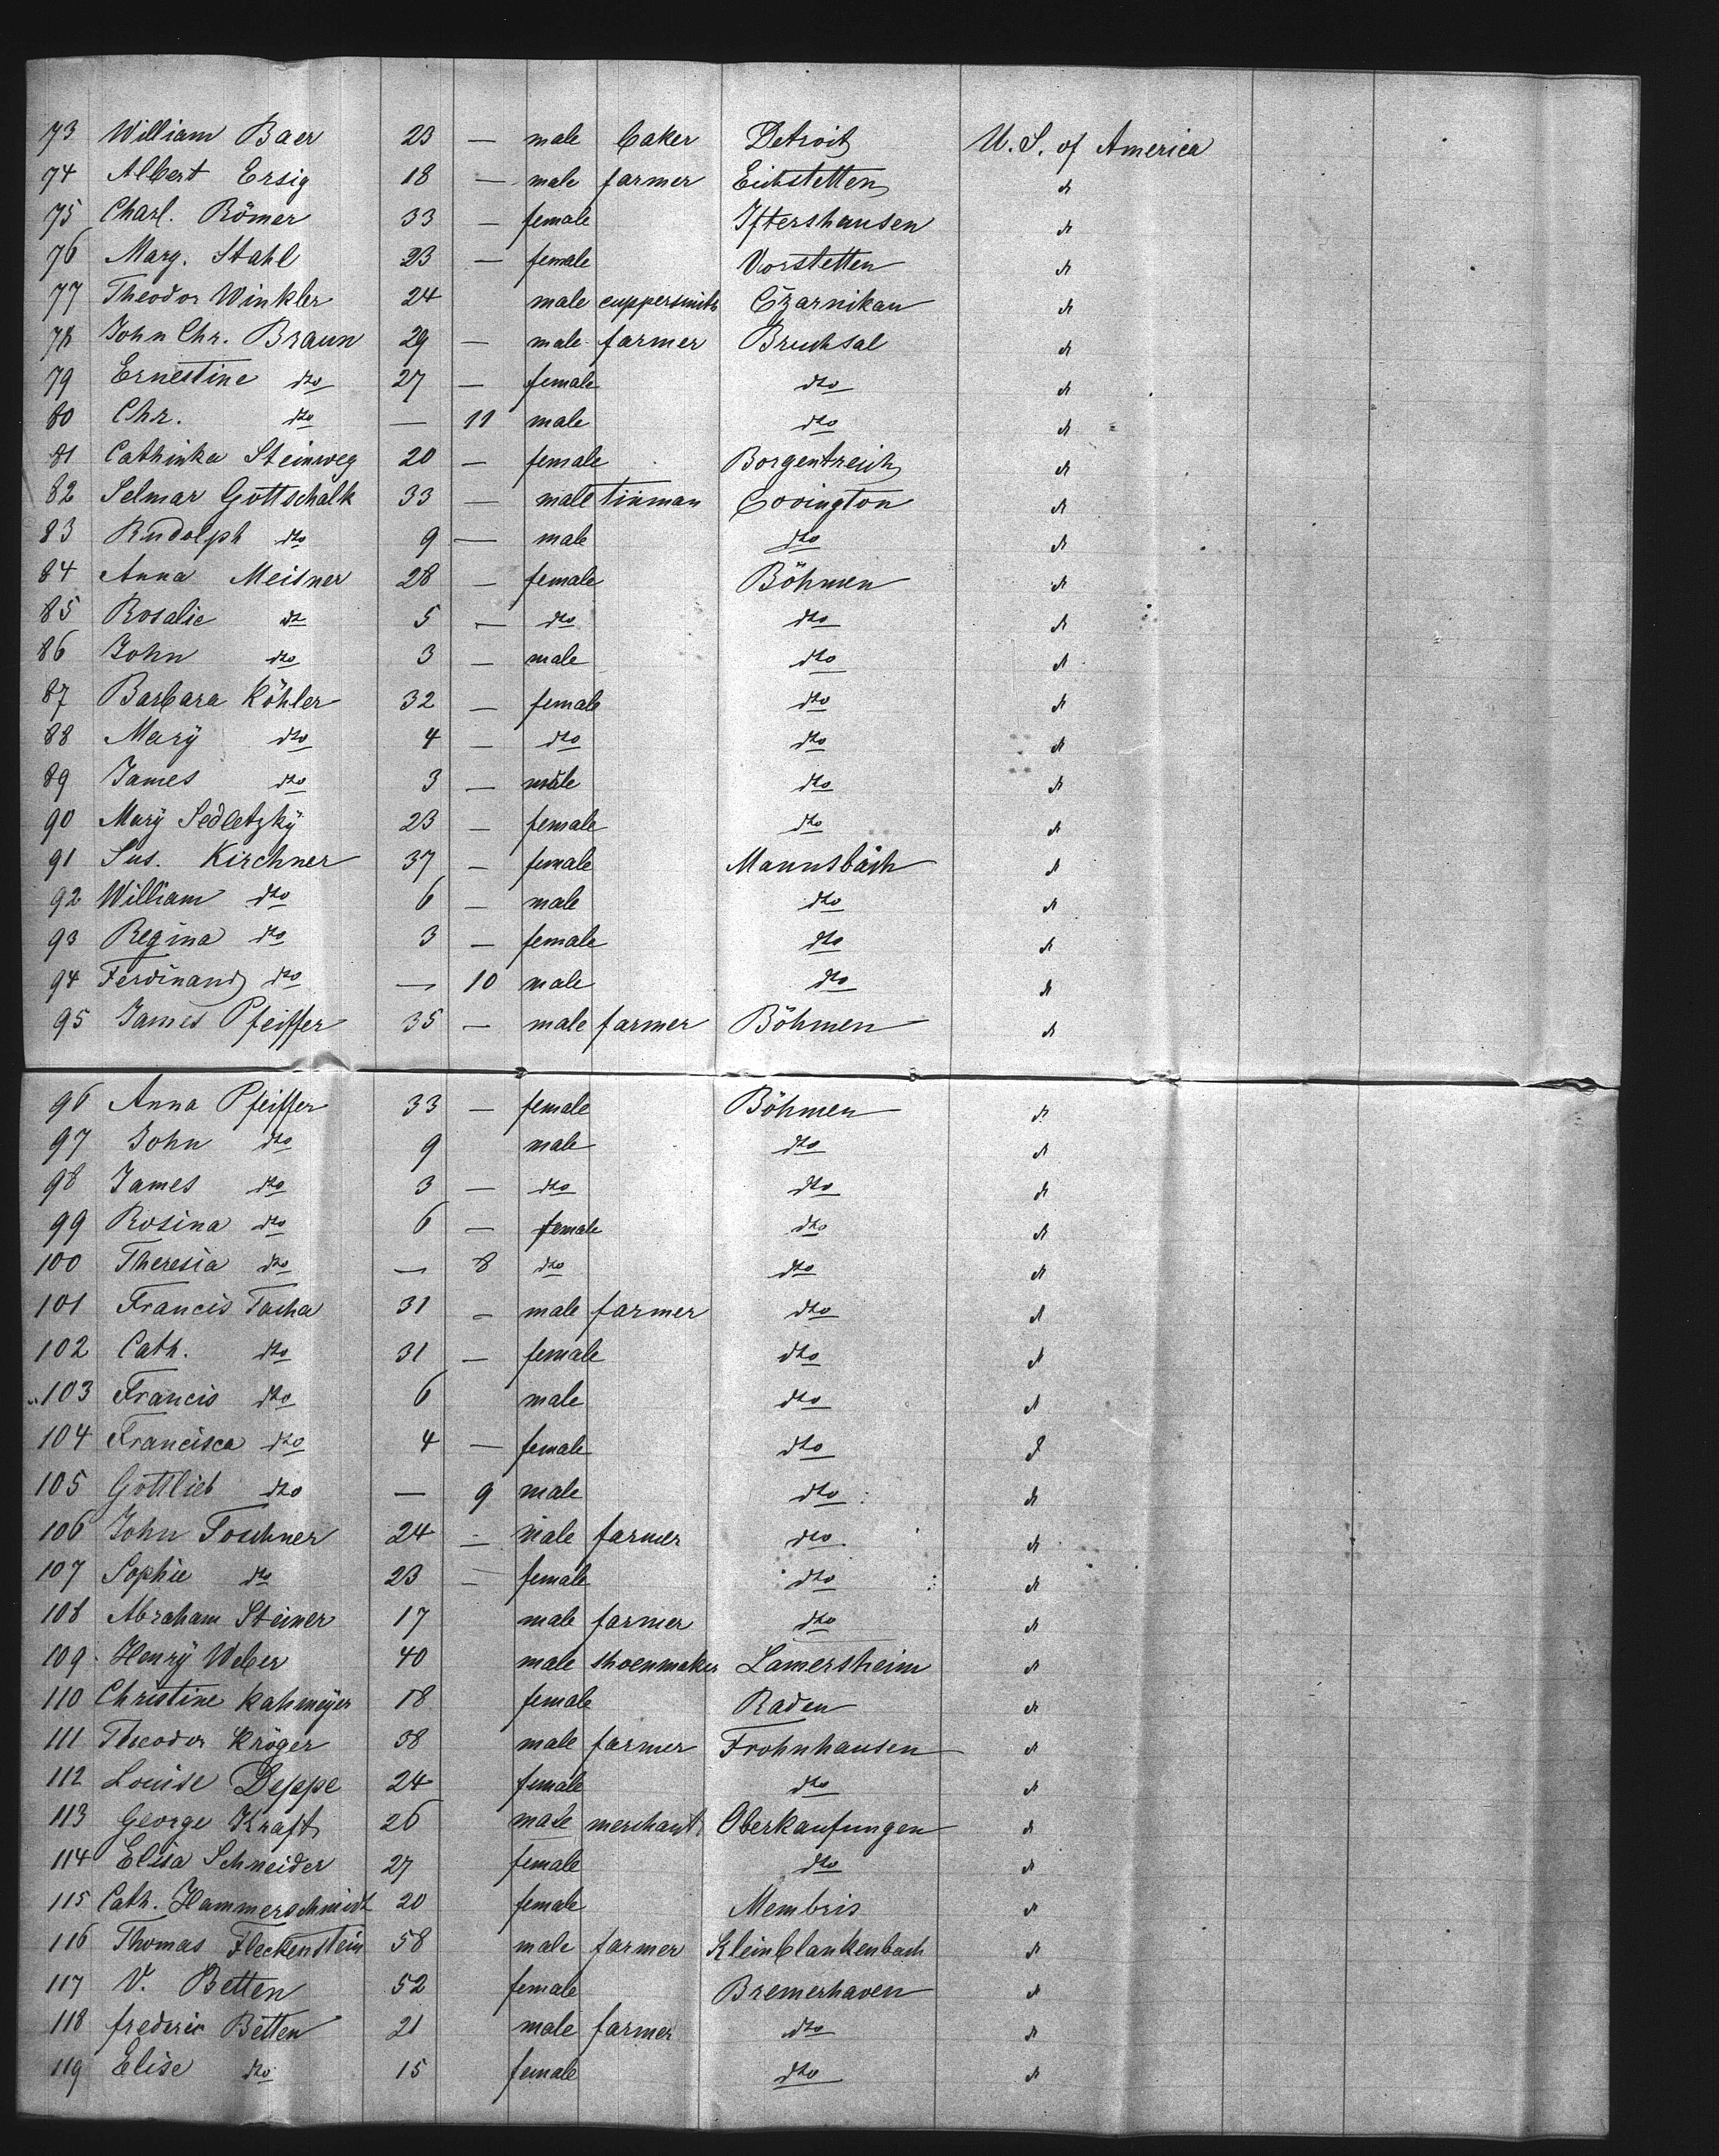 73 William Baer 23 — male baker Detroit U. S. of America
74 Albert Ersig 18 — male farmer Eichstetten do
75 Charl. Römer 33 — female Iftershausen do
76 Marg. Stahl 23 — female Vorstetten do
77 Theodor Winkler 24 male cuppersmith Czarnikau do
78 John Chr. Braun 29 — male farmer Bruchsal do
79 Ernestine dto 27 — female dto do
80 Chr. dto — 11 male dto do
81 Cathinka Steinweg 20 — female Borgentreich do
82 Selmar Gottschalk 33 — male tinman Covington do
83 Rudolph dto 9 — male dto do
84 Anna Meisner 28 — female Böhmen do
85 Rosalie dto 5 — dto dto do
86 John dto 3 — male dto do
87 Barbara Köhler 32 — female dto do
88 Marÿ dto 4 — dto dto do
89 James dto 3 — male dto do
90 Marÿ Sedletzkÿ 23 — female dto do
91 Sus. Kirchner 37 — female Mannsbach do
92 William dto 6 — male dto do
93 Regina dto 3 — female dto do
94 Ferdinand dto — 10 male dto do
95 James Pfeiffer 35 — male farmer Böhmen do
96 Anna Pfeiffer 33 — female Böhmen do
97 John dto 9 male dto do
98 James dto 3 — dto dto do
99 Rosina dto 6 — female dto do
100 Theresia dto — 8 dto dto do
101 Francis Tacha 31 — male farmer dto do
102 Cath. dto 31 — female dto do
103 Francis dto 6 male dto do
104 Francisca dto 4 — female dto do
105 Gottlieb dto — 9 male dto do
106 John Toschner 24 — male farmer dto do
107 Sophie dto 23 — female dto do
108 Abraham Steiner 17 male farmer dto do
109 Henrÿ Weber 40 male shoenmaker Lamersheim do
110 Christine Kahmeÿer 18 female Raden do
111 Theodor Kröger 38 male farmer Frohnhausen do
112 Louise Deppe 24 female dto do
113 George Kraft 26 male merchant Oberkaufungen do
114 Elisa Schneider 27 female dto do
115 Cath. Hammerschmidt 20 female Membris do
116 Thomas Fleckenstein 58 male farmer Kleinblankenbach do
117 V. Betten 52 female Bremerhaven do
118 frederic Betten 21 male farmer dto do
119 Elise dto 15 female dto do